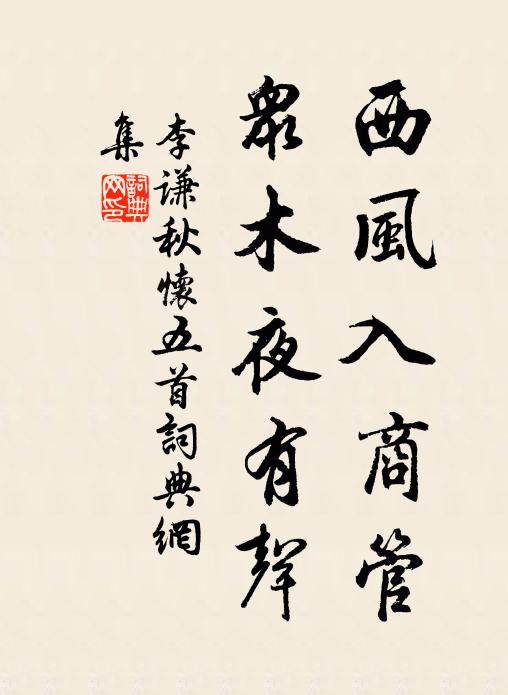 西風入商管
衆木夜有聲
李謙秋懷五首詞典網
集
詞典
网印